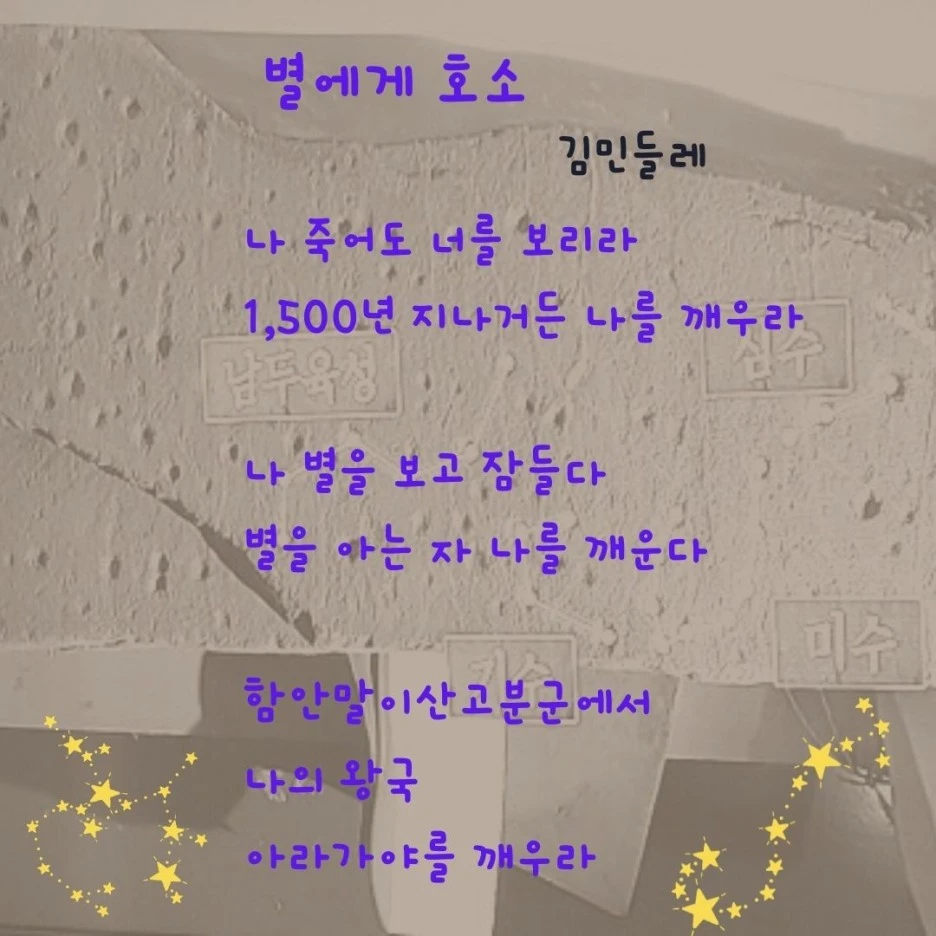 별에게 호소
김민들레
나 죽어도 너를 보리라
1,500년 지나거든 나를 깨우라
남두육성
심수
나 별을 보고 잠들다
별을 아는 자 나를 깨운다
미수
기수
함안말이산고분군에서
나의 왕국
아라가야를 깨우라